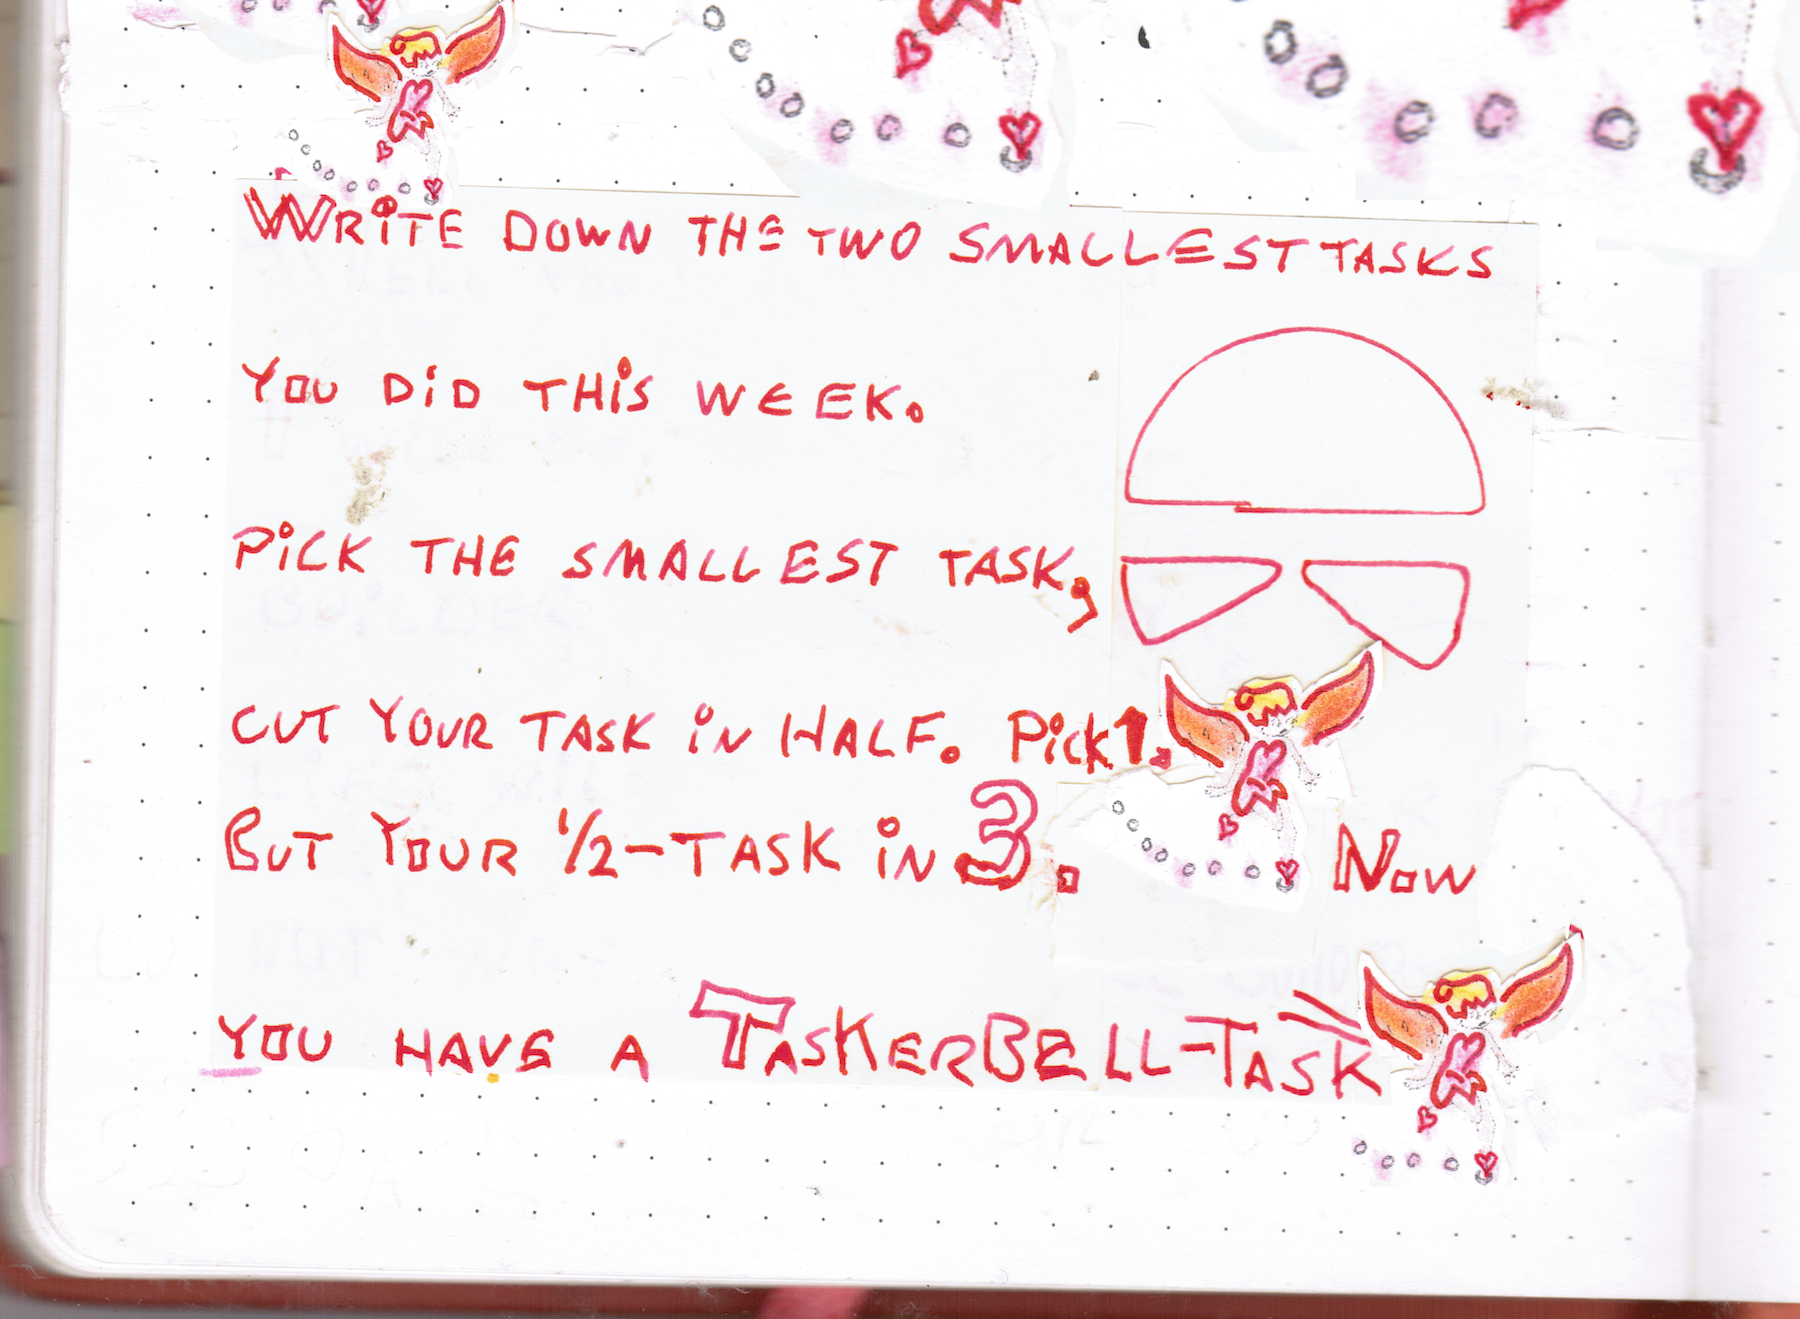 WRiTE DOWN THE TWO SMALLEST TASKS
YOU DiD THiS WEEK.
PiCK THE SMALLEST TASK,
CUT YOUR TASK iN HALF. Pick 1.
BUT YOUR 1/2-TASK iN 3. NOW
YOU HAVE A TASKERBELL-TASK